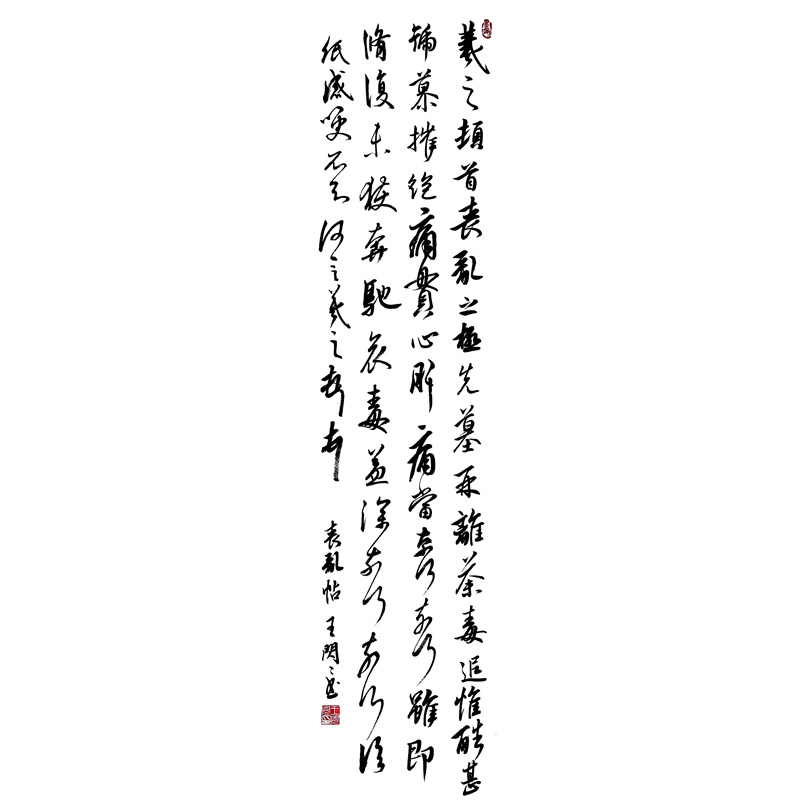 羲之頓首喪亂之極先墓再離荼毒追惟酷甚
號慕摧絕痛貫心肝痛當奈何奈何雖即
脩復未獲奔馳哀毒益深奈何奈何臨
紙感哽不知何言羲之頓首頓首
喪亂帖 王閃之書